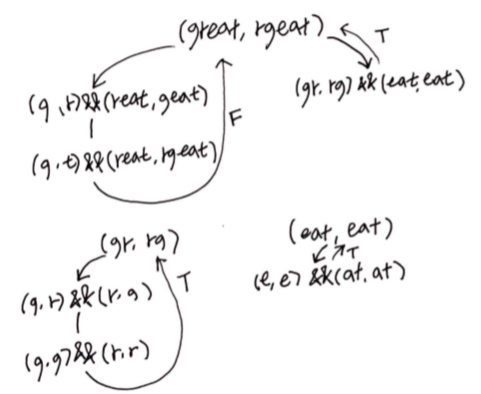 (great, rgeat)
T
(g,r)&&(reat,geat)
(gr,rg)&&(eat,eat)
F
(g,t)&&(reat,rgeat)
(gr,rg)
T
(g,r)&&(r,g)
(g,g)&&(r,r)
(eat, eat)
T
(e,e)&&(at,at)